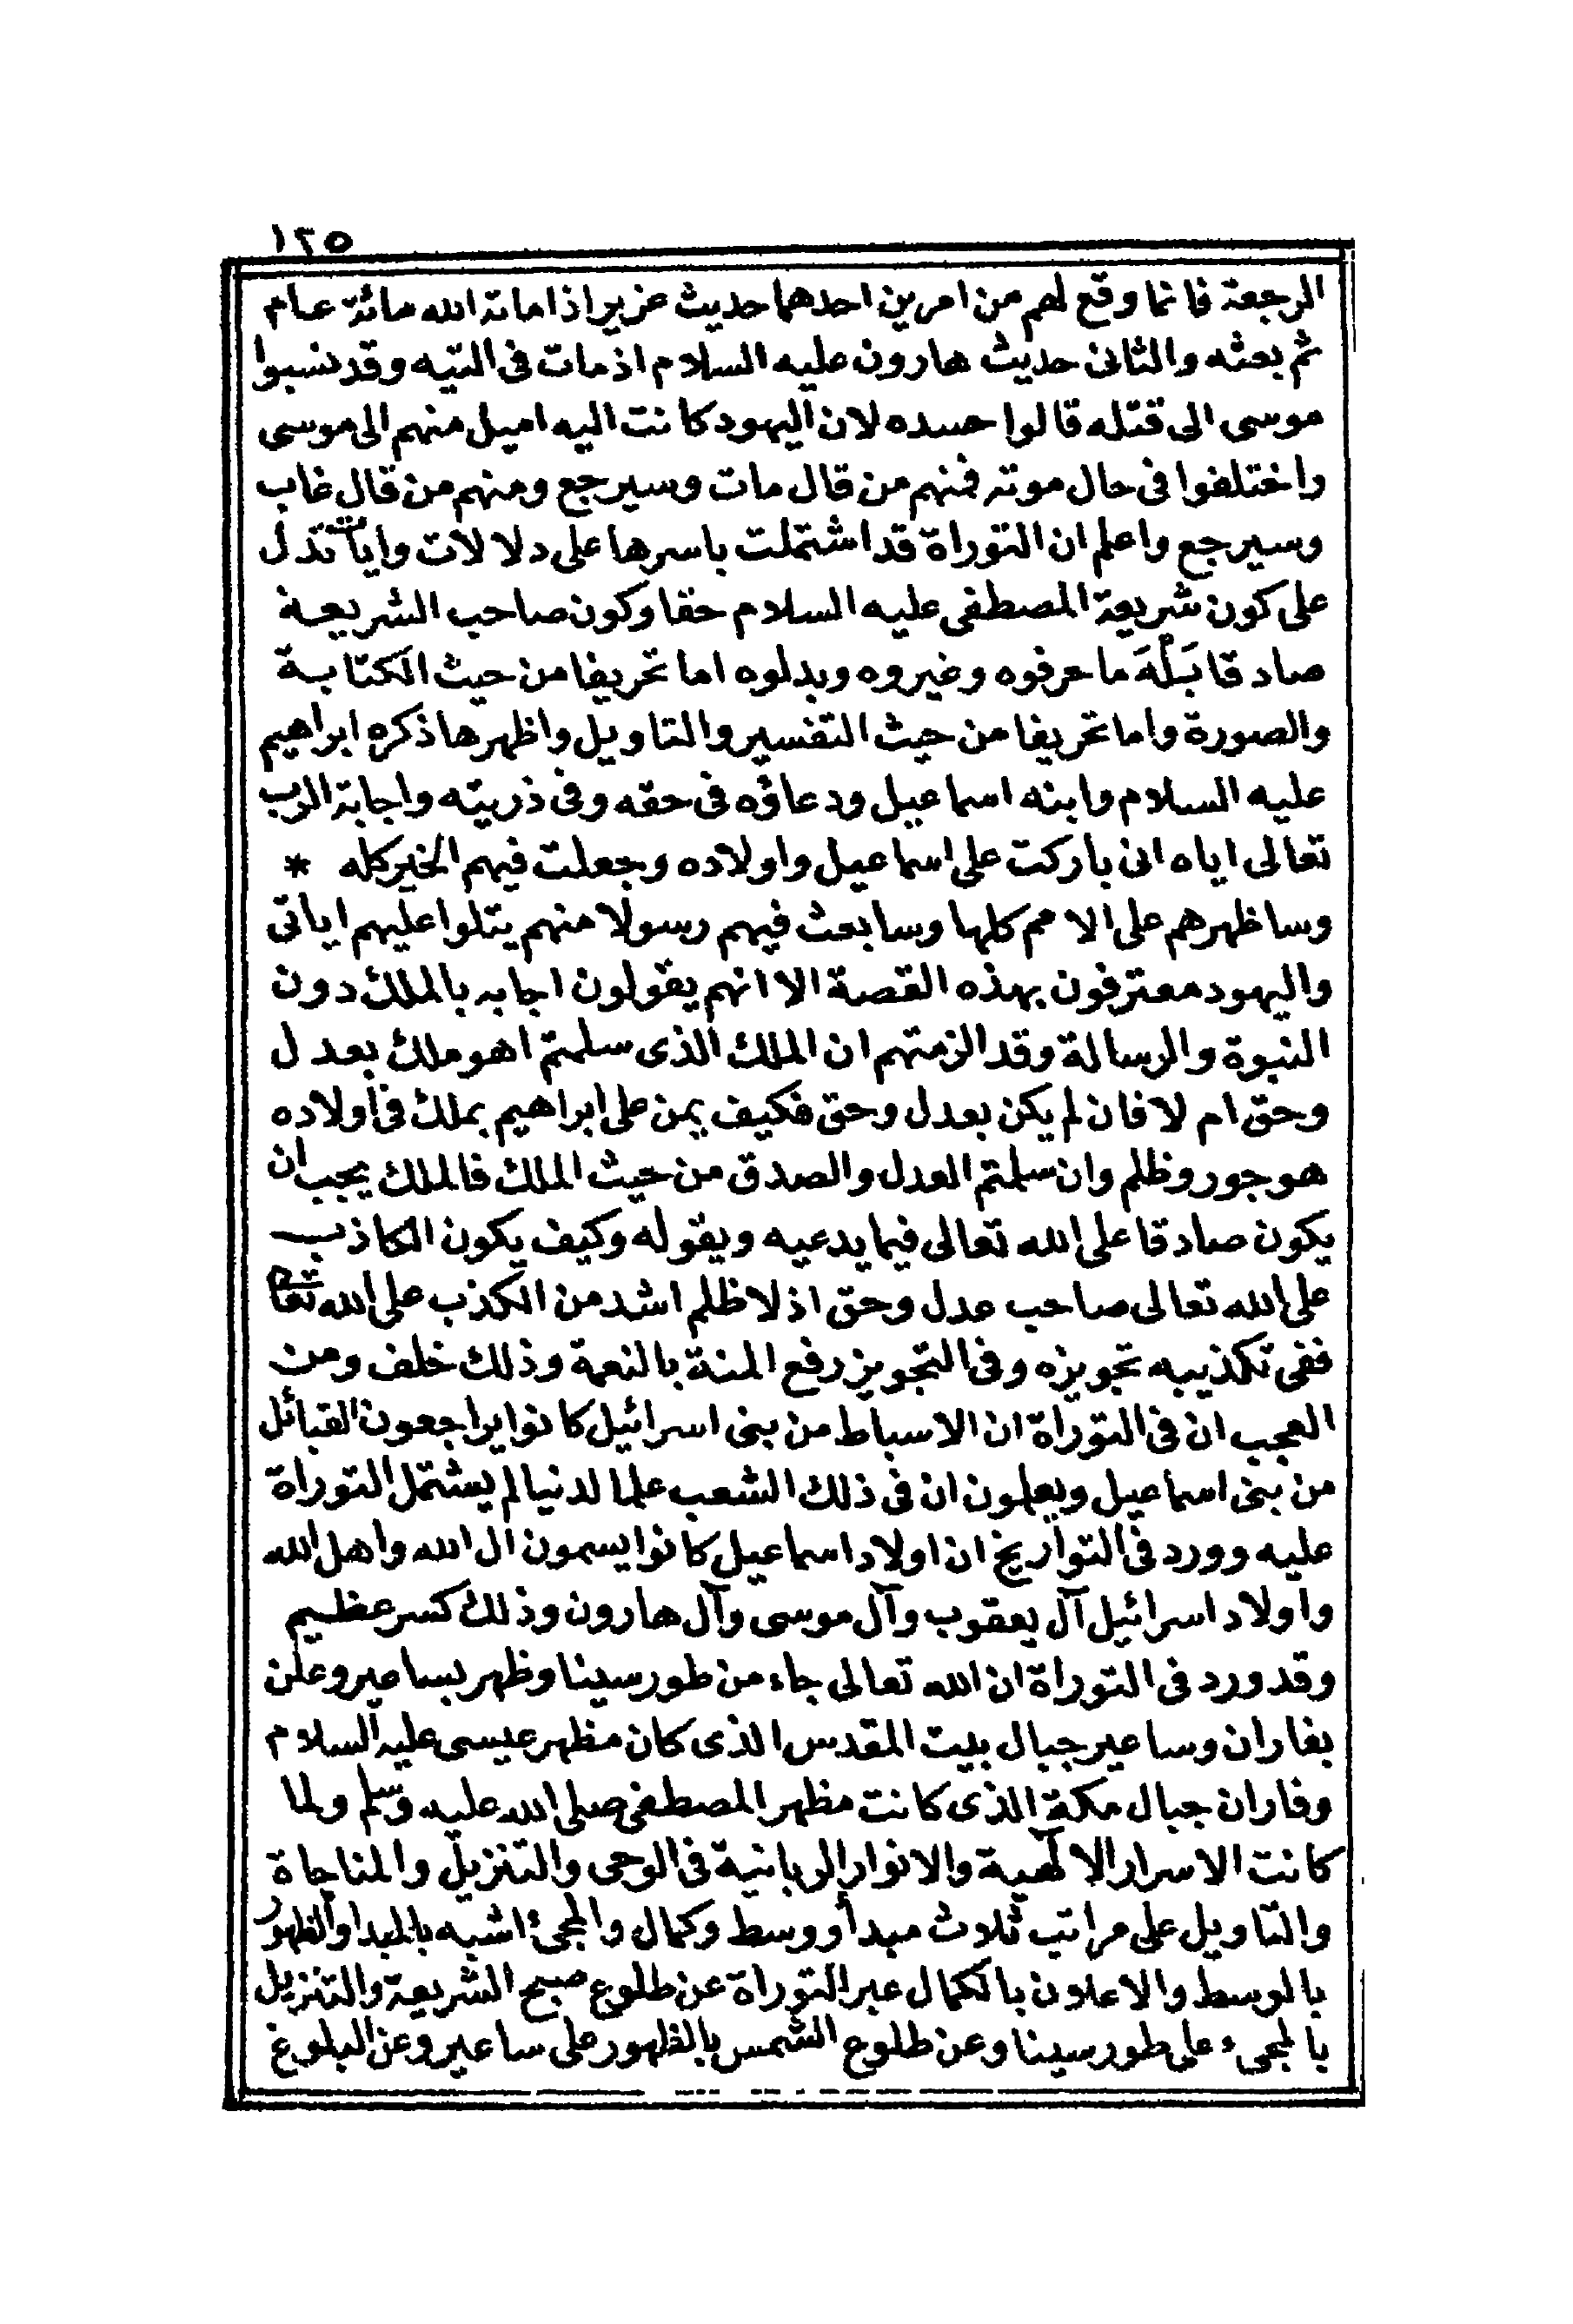 ١٢٥
الرجعة فانما وقع لهم من امرين احدهما حديث عزير اذ اماته الله مائة عام
ثم بعثه والثانى حديث هارون عليه السلام اذ مات فى التيه وقد نسبوا
موسى الى قتله قالوا حسده لان اليهود كانت اليه اميل منهم الى موسى
واختلفوا فى حال موته فمنهم من قال مات وسيرجع ومنهم من قال غاب
وسيرجع واعلم ان التوراة قد اشتملت باسرها على دلالات وايات تدل
على كون شريعة المصطفى عليه السلام حقا وكون صاحب الشريعة
صادقا بَلْهَ ما حرفوه وغيروه وبدلوه اما تحريفا من حيث الكتابة
والصورة واما تحريفا من حيث التفسير والتاويل واظهرها ذكره ابراهيم
عليه السلام وابنه اسماعيل ودعاؤه فى حقه وفى ذريته واجابة الرب
تعالى اياه انى باركت على اسماعيل واولاده وجعلت فيهم الخير كله *
وساظهرهم على الامم كلها وسابعث فيهم رسولا منهم يتلوا عليهم اياتى
واليهود معترفون بهذه القصة الا انهم يقولون اجابه بالملك دون
النبوة والرسالة وقد الزمتهم ان الملك الذى سلمتم اهو ملك بعدل
وحق ام لا فان لم يكن بعدل وحق فكيف يمن على ابراهيم بملك فى أولاده
هو جور وظلم وان سلمتم العدل والصدق من حيث الملك فالملك يجب ان
يكون صادقا على الله تعالى فيما يدعيه ويقوله وكيف يكون الكاذب
على الله تعالى صاحب عدل وحق اذ لا ظلم اشد من الكذب على الله تعا
ففى تكذيبه تجويزه وفى التجويز رفع المنة بالنعمة وذلك خلف ومن
العجب ان فى التوراة ان الاسباط من بنى اسرائيل كانوا يراجعون القبائل
من بنى اسماعيل ويعلمون ان فى ذلك الشعب علما لدنيا لم يشتمل التوراة
عليه وورد فى التواريخ ان اولاد اسماعيل كانوا يسمون ال الله واهل الله
واولاد اسرائيل آل يعقوب وآل موسى وآل هارون وذلك كسر عظيم
وقد ورد فى التوراة ان الله تعالى جاء من طور سينا وظهر بساعير وعلن
بفاران وساعير جبال بيت المقدس الذى كان مظهر عيسى عليه السلام
وفاران جبال مكة الذى كانت مظهر المصطفى صلى الله عليه وسلم ولما
كانت الاسرار الآلهية والانوار الربانية فى الوحى والتنزيل والمناجاة
والتاويل على مراتب ثلاث مبدأ ووسط وكمال والمجئ اشبه بالمبدا والظهور
بالوسط والاعلان بالكمال عبر التوراة عن طلوع صبح الشريعة والتنزيل
بالمجىء على طور سينا وعن طلوع الشمس بالظهور على ساعير وعن البلوغ